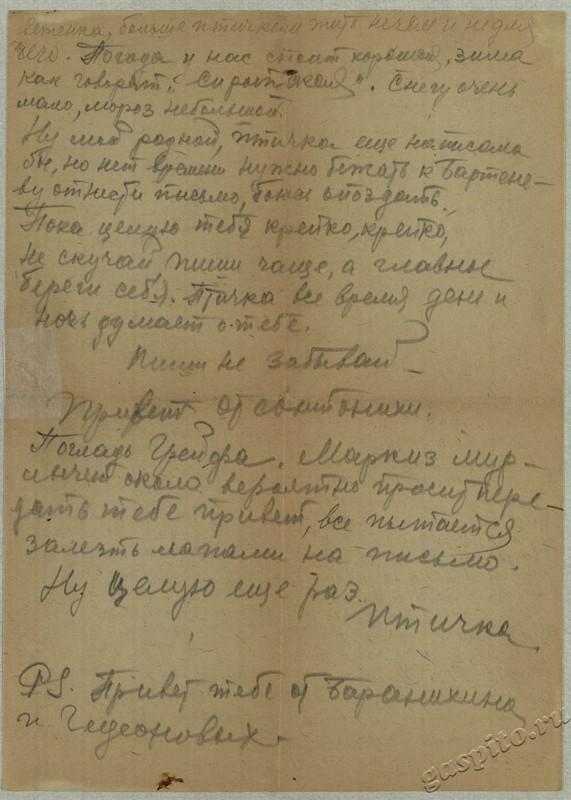 больше птичкам жить нечем и не для
чего. Погода у нас стоит хорошая, зима
как говорят „Сиротская". Снегу очень
мало, мороз небольшой.
Ну мой родной, птичка еще написала
бы, но нет времени нужно бежать к Бартене-
ву отнести письмо, боюсь опоздать.
Пока целую тебя крепко, крепко,
не скучай пиши чаще, а главное
береги себя. Птичка все время день и
ночь думает о тебе.
Пиши не забывай
Привет от
Погладь Грейфа. Маркиз мур-
около вероятно просит пере-
дать тебе привет, все пытается
залезть лапами на письмо.
Ну целую еще раз.
Птичка
PS. Привет тебе от Бараникина
и Гедеоновых.
gaspito.ru